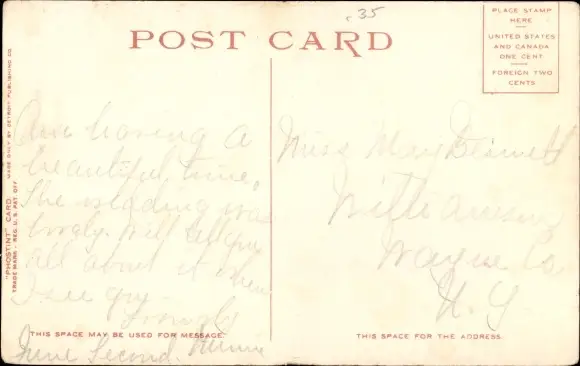 .35
POST CARD
PLACE STAMP
HERE
UNITED STATES
AND CANADA
ONE CENT
FOREIGN TWO
CENTS
"PHOSTINT" CARD
TRADE MARK - REG. U.S. PAT. OFF.
MADE ONLY BY DETROIT PUBLISHING CO.
Am having a
beautiful time,
The wedding was
lovely. Will tell you
all about it when
I see you.
Lovingly
Minnie
June Second.
THIS SPACE MAY BE USED FOR MESSAGE.
Miss May
Williamson
Wayne Co.
N. Y.
THIS SPACE FOR THE ADDRESS.